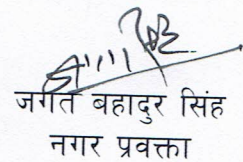 जगत बहादुर सिंह
नगर प्रवक्ता